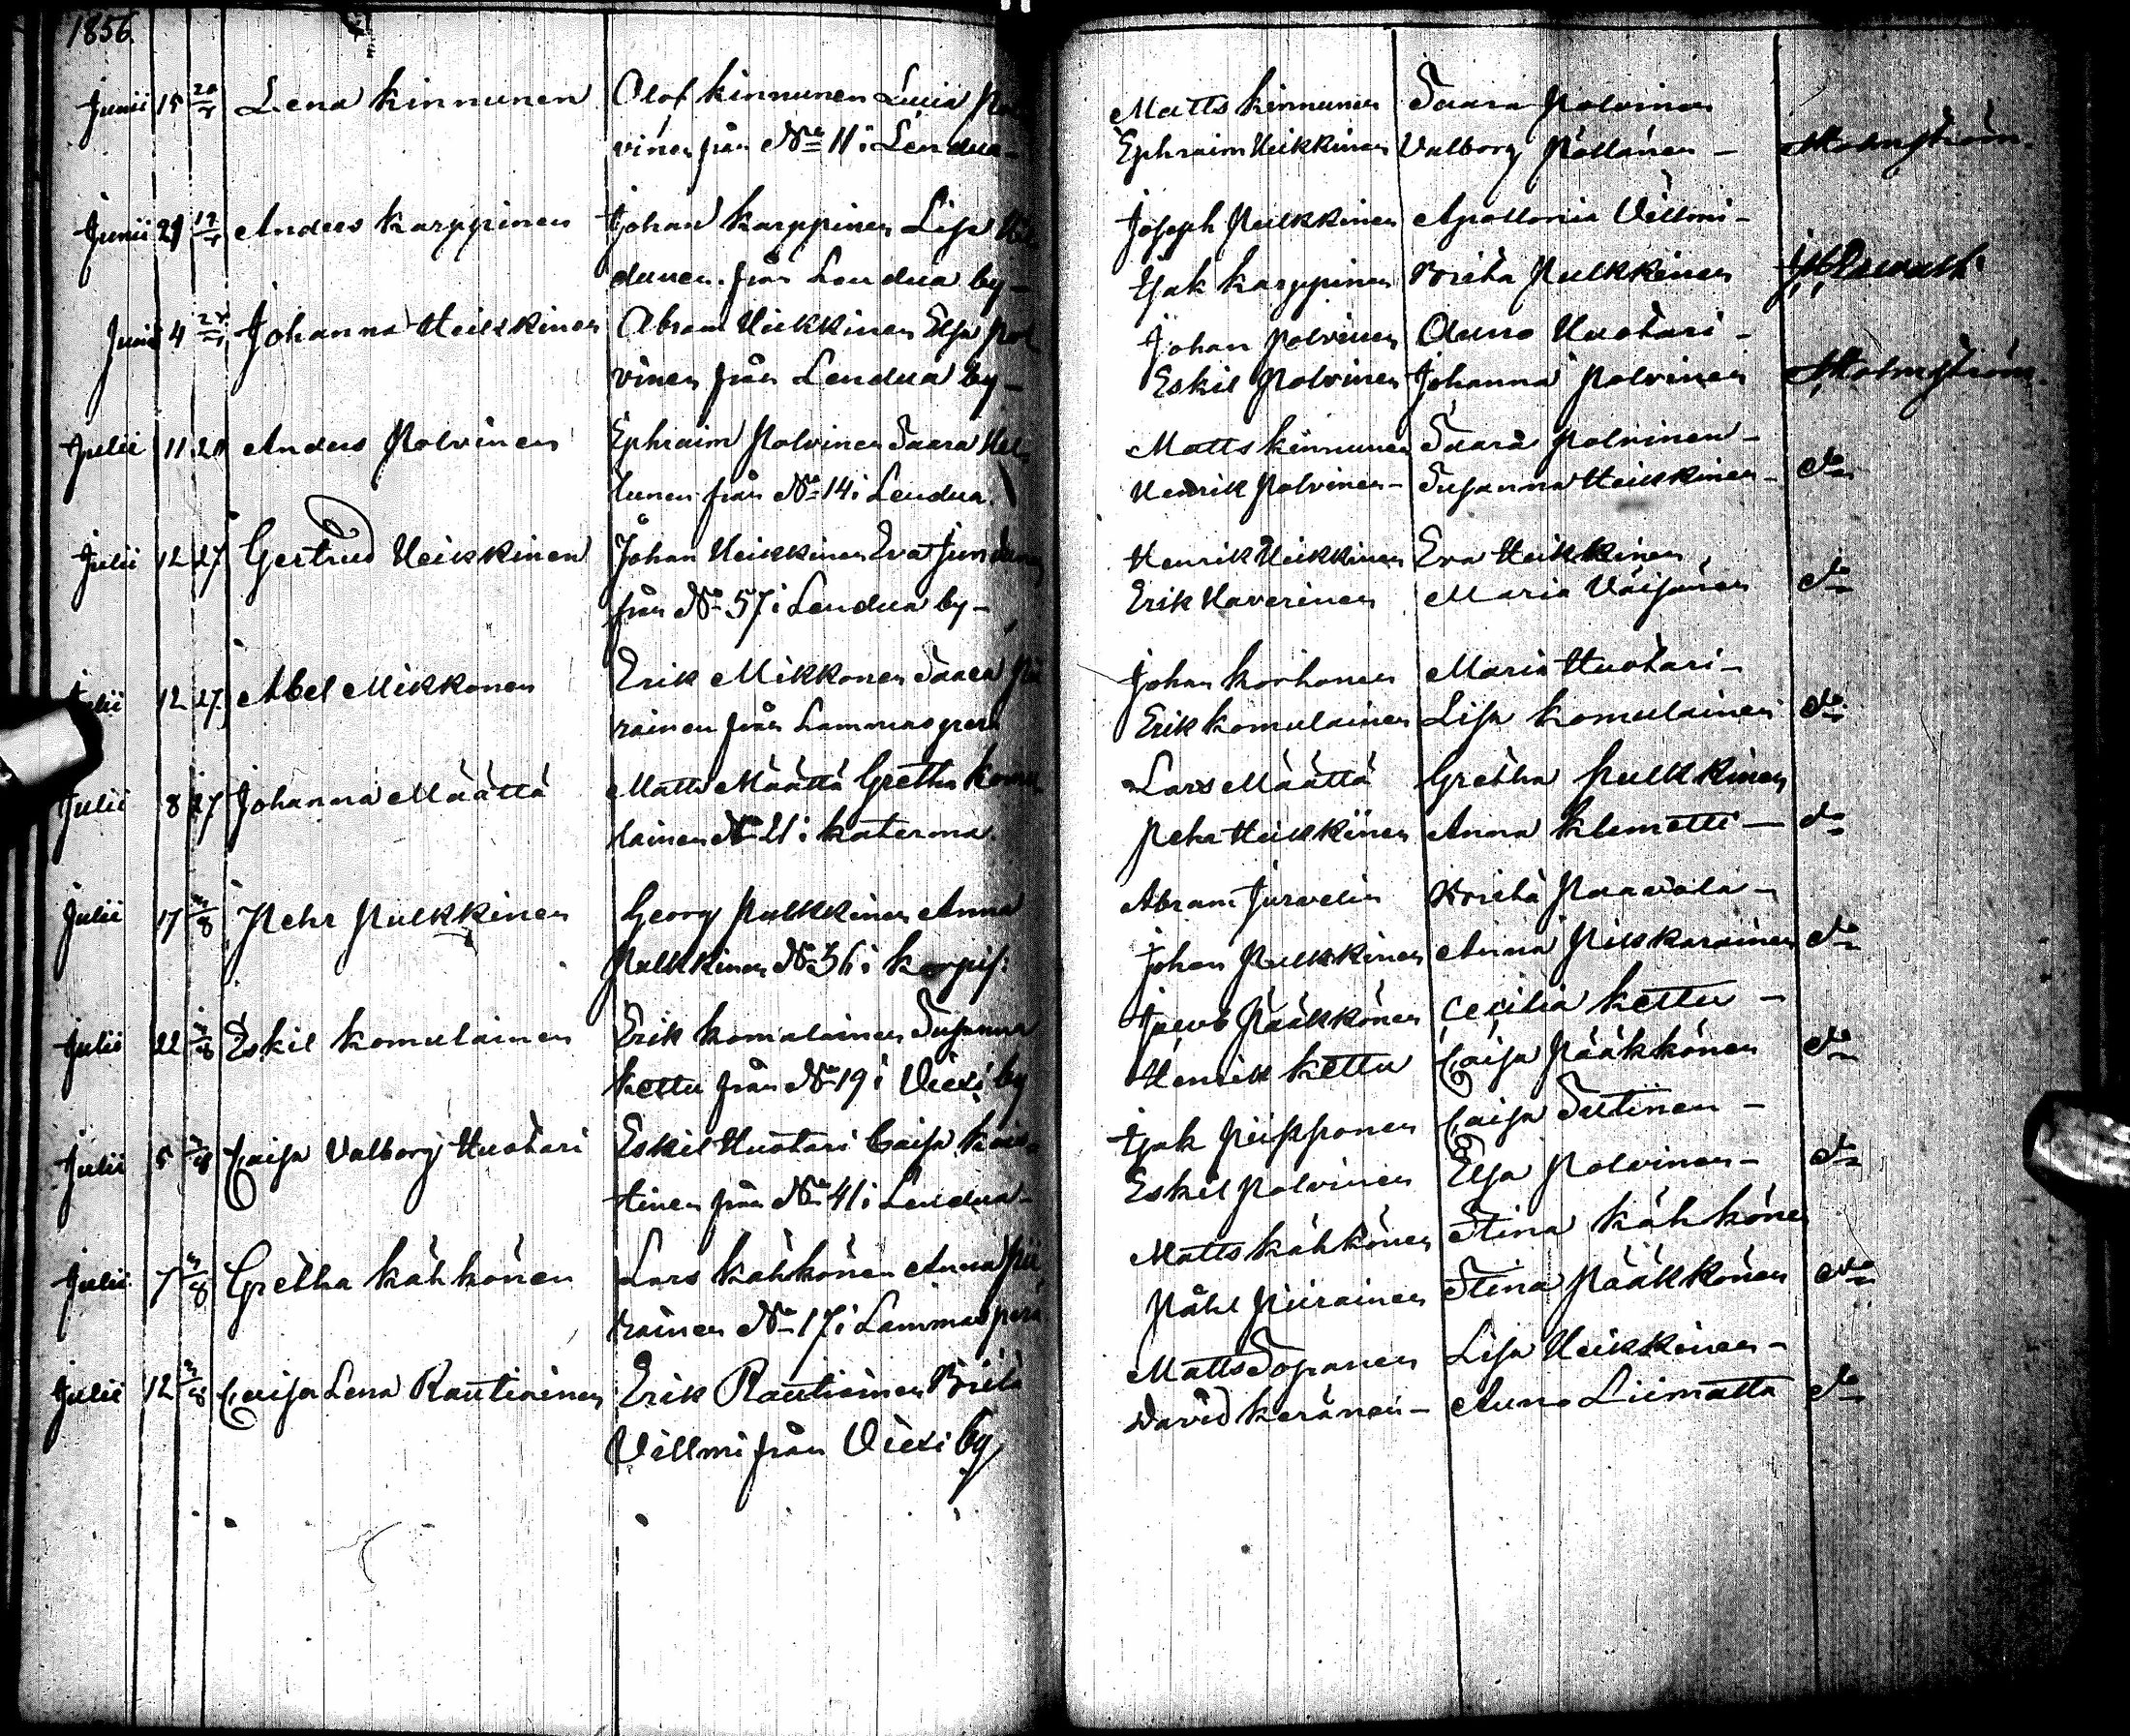 1856.
Junii 15 20/7 Lena Kinnunen Olof Kinnunen Lucia Pol
vinen från No 11 i Lendua - Matts Kinnunen Saara Polvinen
Ephraim Heikkinen Valborg Pöllänen - Holmström.
Junii 21 Anders Karppinen Johan Karppinen Lisa
dunen från Lendua by - Joseph Pulkkinen Apollonia Villmi -
Isak Karppinen Brita Pulkkinen
Junii 4 Johanna Heikkinen Abram Heikkinen Elsa Pol
vinen från Lendua by - Johan Polvinen Anna Huotari -
Eskil Polvinen Johanna Polvinen Holmström.
Julii 11 20 Anders Polvinen Ephraim Polvinen Saara
tunen från No 14 i Lendua. Matts Kinnunen Saara Polvinen -
Henrik Polvinen - Susanna Heikkinen - do
Julii 12 27 Gertrud Heikkinen Johan Heikkinen Eva Juntunen
från No 57 i Lendua by - Henrik Heikkinen Eva Heikkinen
Erik Haverinen Maria Väisänen do
Julii 12 27 Abel Mikkonen Erik Mikkonen Saara Pii
rainen från Lammasperä Johan Korhonen Maria Huotari -
Erik Komulainen Lisa Komulainen do
Julii 8 27 Johanna Määttä Matts Määttä Gretha Komu
lainen No 21 i Katerma. Lars Määttä Gretha Pulkkinen
Pehr Heikkinen Anna Klemetti - do
Julii 17 3/8 Pehr Pulkkinen Georg Pulkkinen Anna
Pulkkinen No 36 i Korpis: Abram Jurvelin Brita Paavola -
Johan Pulkkinen Anna Pikkarainen do
Julii 22 3/8 Eskil Komulainen Erik Komulainen Susanna
Kettu från No 19 i Viexi by Jacob Pääkkönen Cecilia Kettu -
Henrik Kettu Caisa Pääkkönen do
Julii 5 3/8 Caisa Valborg Huotari Eskil Huotari Caisa
tinen från No 41 i Lendua - Isak Piipponen Caisa Tutinen -
Eskil Polvinen Elsa Polvinen - do
Julii 7 3/8 Gretha Kähkönen Lars Kähkönen Anna Pii
rainen No 17 i Lammasperä Matts Kähkönen Stina Kähkönen
Påhl Piirainen Stina Pääkkönen do
Julii 12 3/8 Caisa Lena Rautiainen Erik Rautiainen Brita
Villmi från Viexi by Matts Sopanen Lisa Heikkinen -
David Keränen - Anna Liimatta do